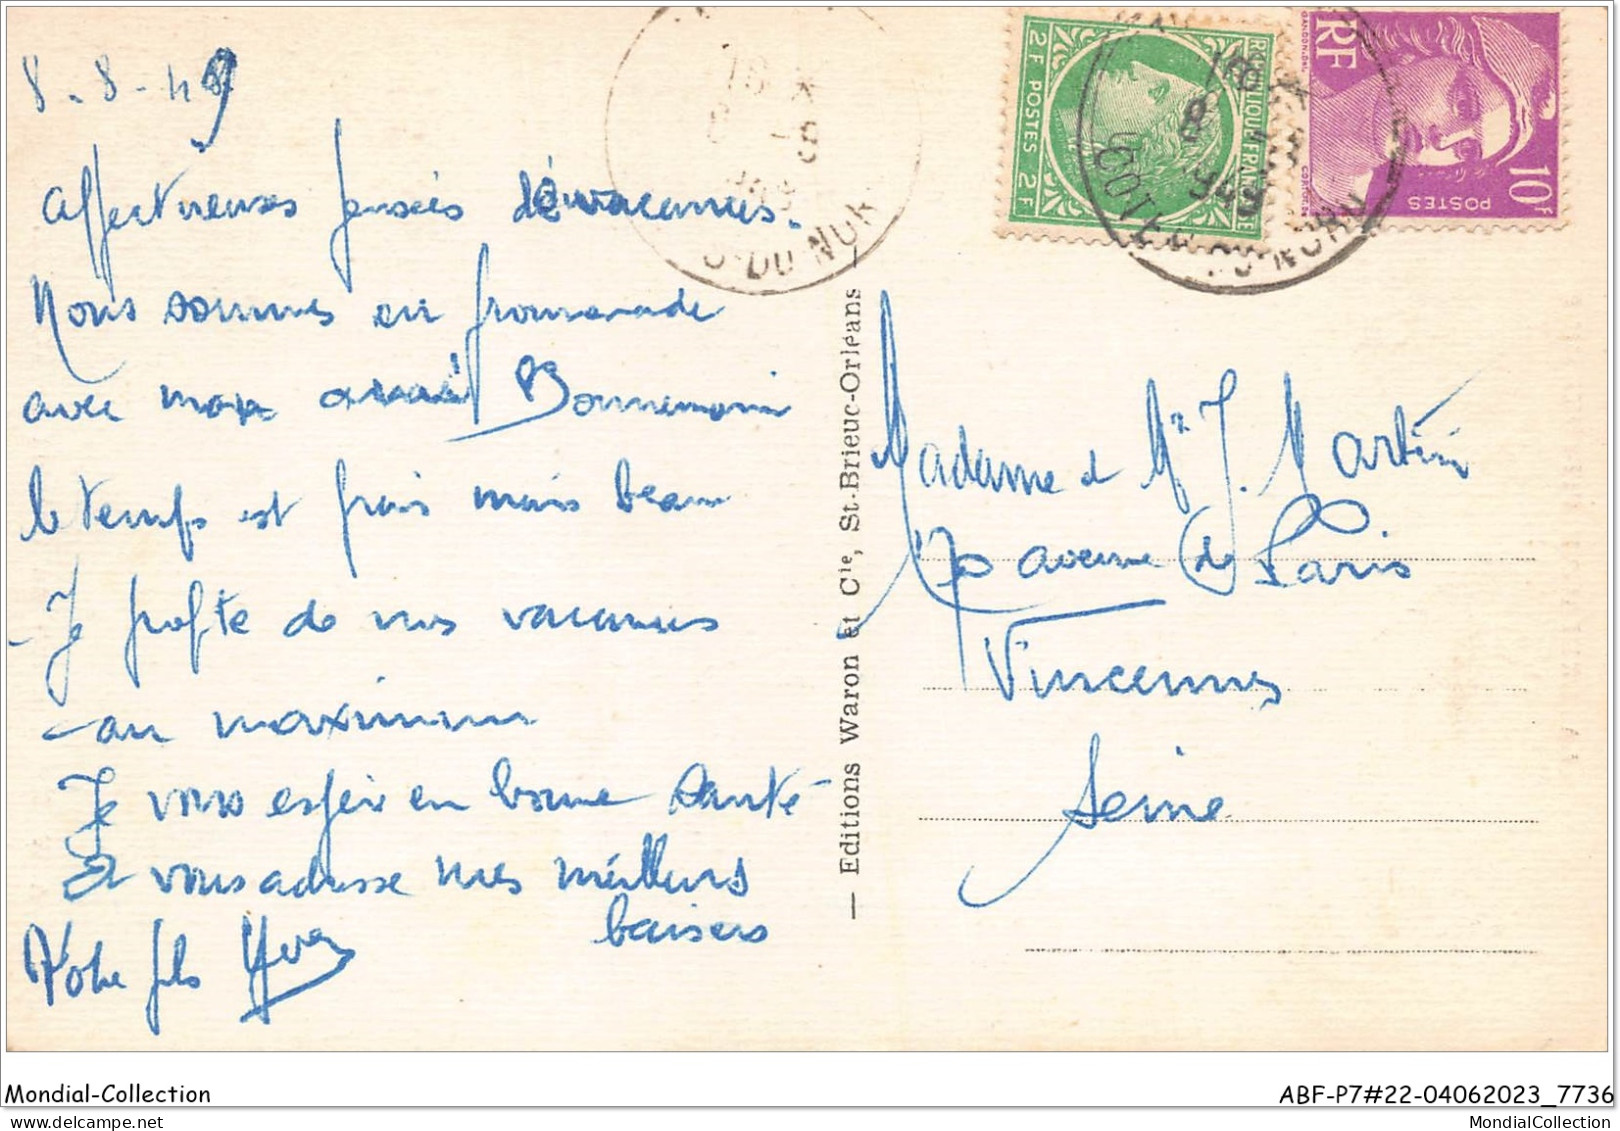 8-8-49
Affectueuses pensées de vacances.
Nous sommes en promenade
avec mon Bonnemain
le temps est frais mais beau
- Je profite de mes vacances
au maximum
Je vous espère en bonne santé
Et vous adresse mes meilleurs
baisers
Votre fils Yves
18 *
8 -8
1949
C-DU-NORD
2F POSTES 2F
REPUBLIQUE FRANÇAISE
RF
10F
POSTES
COTES-DU-NORD
— Editions Waron et Cie, St-Brieuc-Orléans —
Madame & Mr J. Martin
170 avenue de Paris
Vincennes
Seine
Mondial-Collection
ABF-P7#22-04062023_7736
MondialCollection